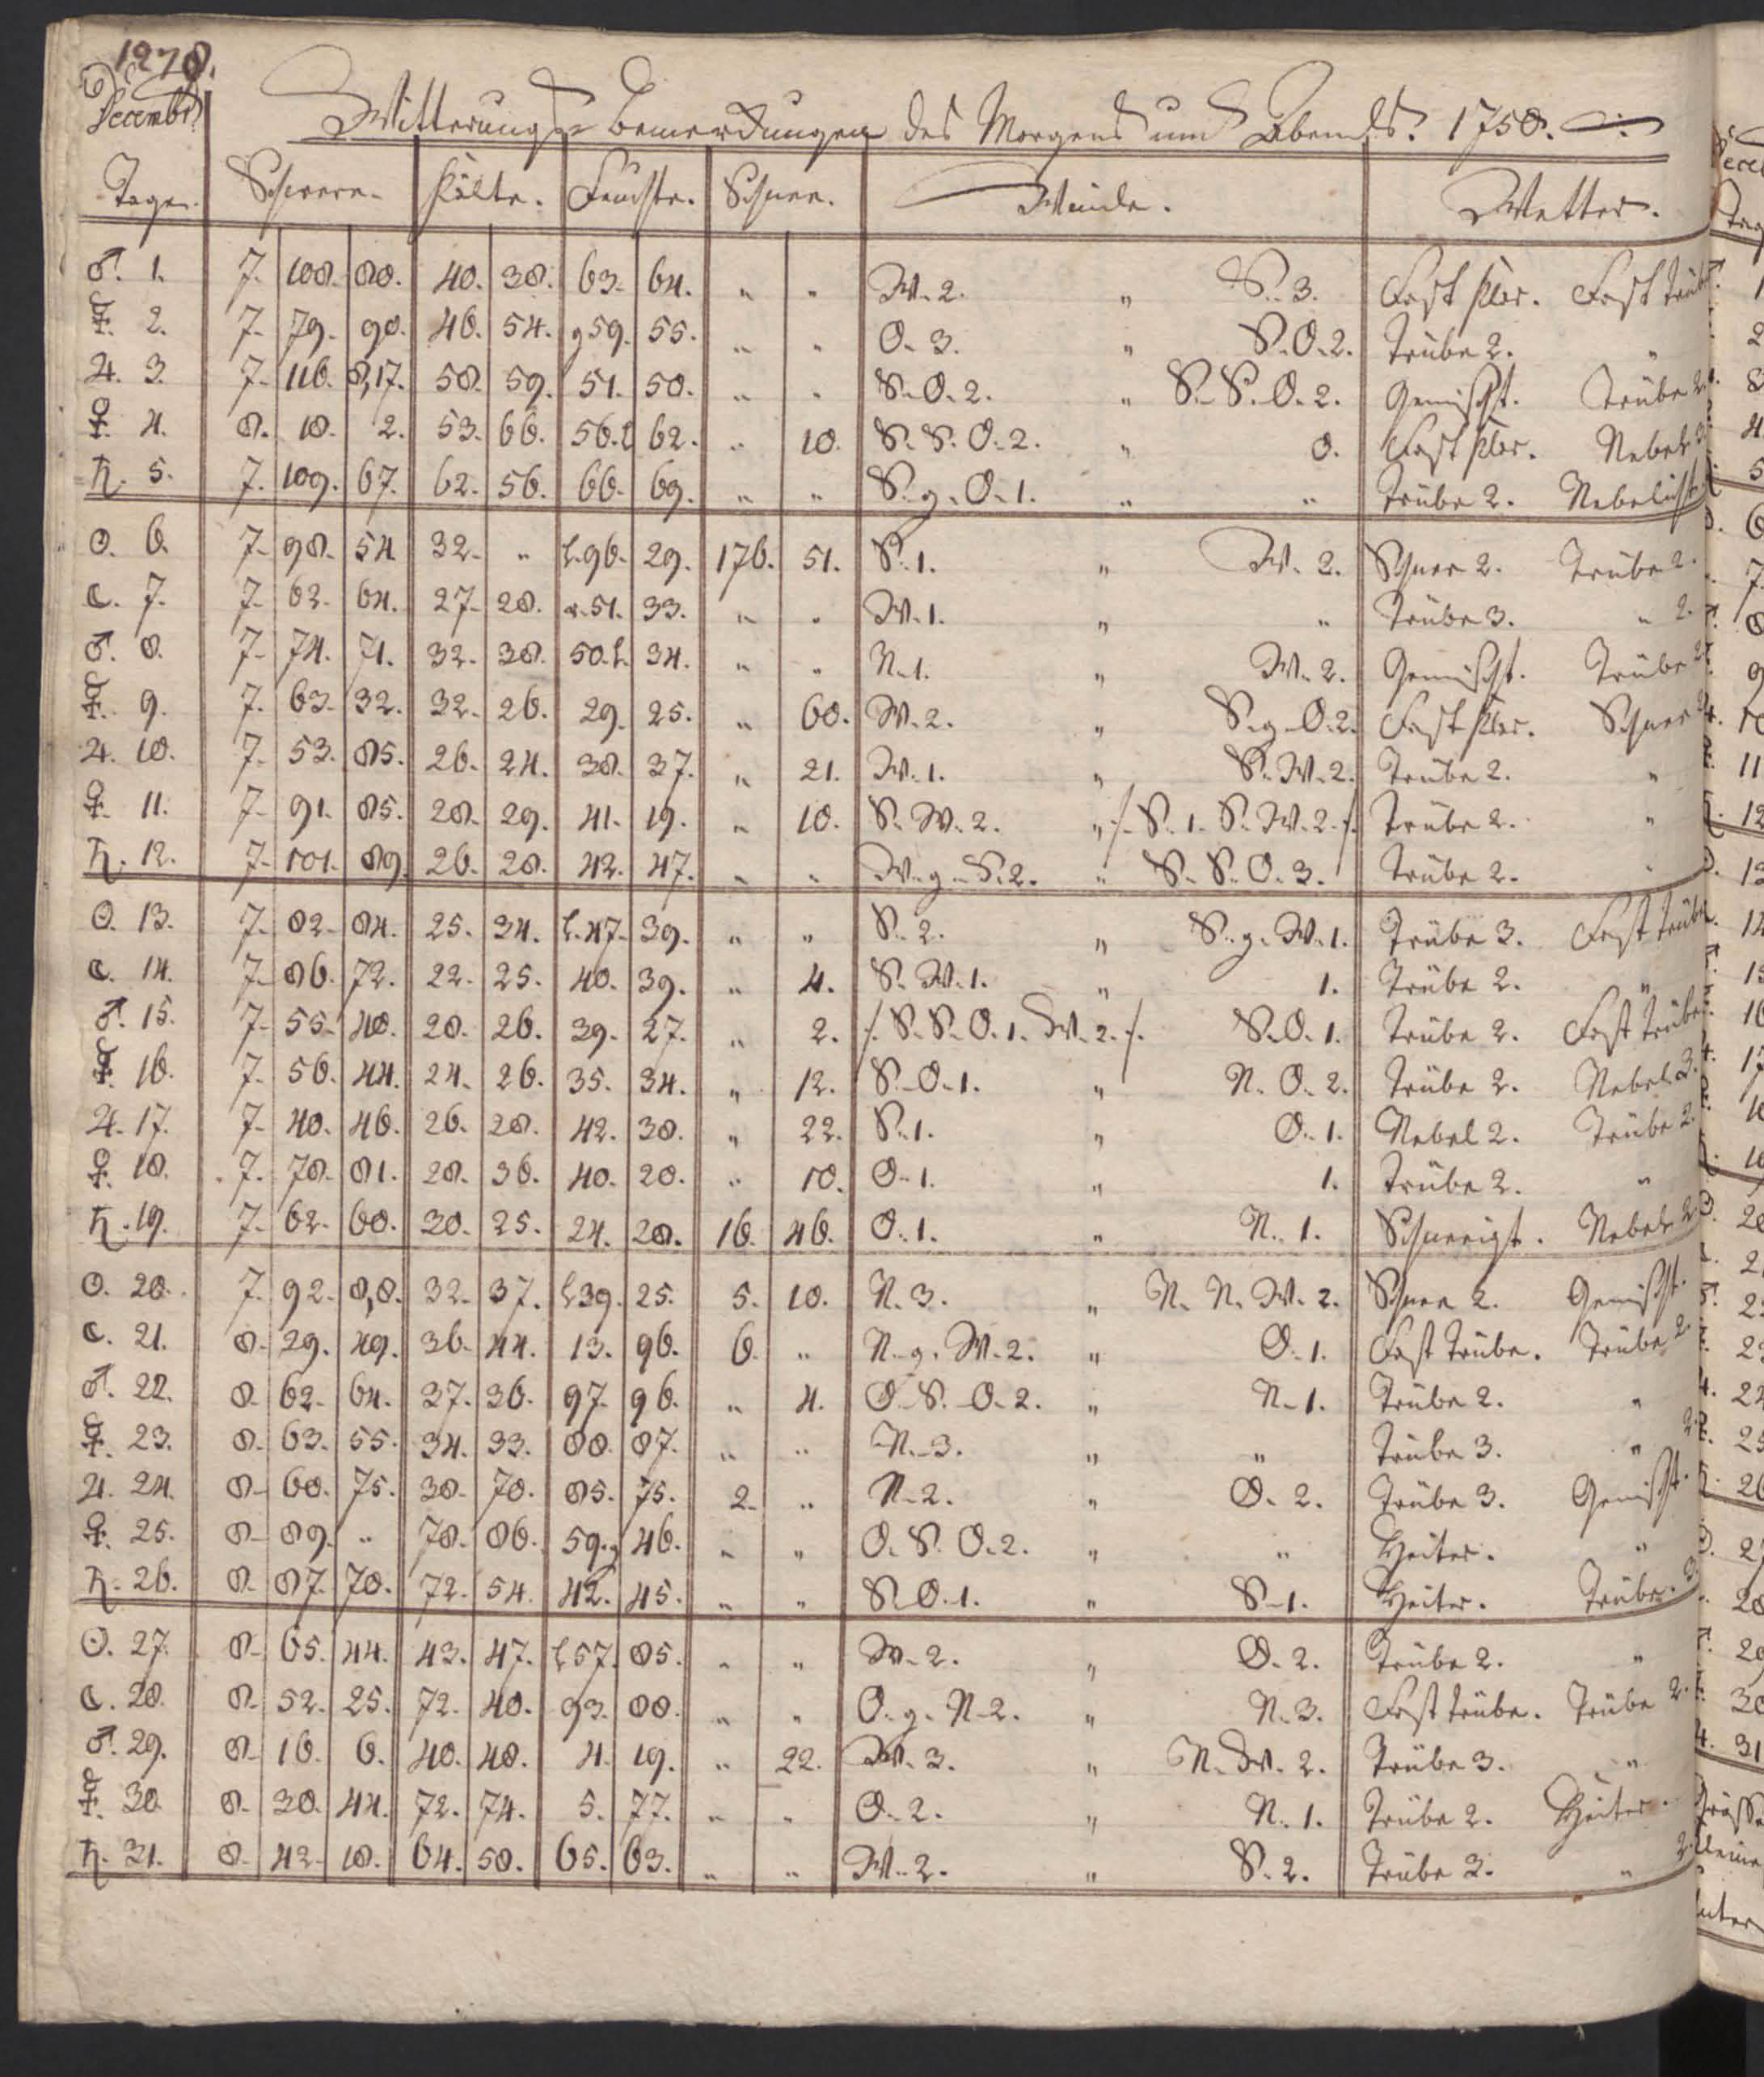 1278.
Decembr.
Witterungs-Bemerkungen des Morgens und Abends. 1750.
Tage. Schwere. Kälte. Feuchte. Schnee. Winde. Wetter.
♂. 1. 7. 108. 80. 40. 38. 63. 64. " " W. 2. " S. 3. Fast klar. Fast trüb
☿. 2. 7. 79. 98. 46. 54. g 59. 55. " " O. 3. " S. O. 2. Trübe 2. "
♃. 3. 7. 116. 8,17. 58. 59. 51. 50. " " S. O. 2. " S. S. O. 2. Gemischt. Trübe 2.
♀. 4. 8. 18. 2. 53. 66. 56. l 62. " 10. S. S. O. 2. " 0. Fast klar. Nebel 3.
♄. 5. 7. 109. 67. 62. 56. 66. 69. " " S. g. O. 1. " " Trübe 2. Nebelicht
☉. 6. 7. 98. 54 32. " l. 96. 29. 176. 51. S. 1. " W. 2. Schnee 2. Trübe 2.
☾. 7. 7. 62. 64. 27. 28. 51. 33. " " W. 1. " " Trübe 3. " 2.
♂. 8. 7. 74. 71. 32. 38. 50. l. 34. " " N. 1. " W. 2. Gemischt. Trübe 2
☿. 9. 7. 63. 32. 32. 26. 29. 25. " 60. W. 2. " S. g. O. 2. Fast klar. Schnee
♃. 10. 7. 53. 85. 26. 24. 38. 37. " 21. W. 1. " S. W. 2. Trübe 2. "
♀. 11. 7. 91. 85. 28. 29. 41. 19. " 10. S. W. 2. " /. S. 1. S. W. 2. /. Trübe 2. "
♄. 12. 7. 101. 89. 26. 28. 42. 47. " " W. g. S. 2. " S. S. O. 3. Trübe 2. "
☉. 13. 7. 82. 84. 25. 34. l. 47. 39. " " S. 2. " S. g. W. 1. Trübe 3. Fast trübe
☾. 14. 7. 86. 72. 22. 25. 40. 39. " 4. S. W. 1. " 1. Trübe 2. "
♂. 15. 7. 55. 48. 28. 26. 39. 27. " 2. /. S. S. O. 1. W. 2. /. S. O. 1. Trübe 2. Fast trübe
☿. 16. 7. 56. 44. 24. 26. 35. 34. " 12. S. O. 1. " N. O. 2. Trübe 2. Nebel 3.
♃. 17. 7. 40. 46. 26. 28. 42. 38. " 22. S. 1. " O. 1. Nebel 2. Trübe 2.
♀. 18. 7. 78. 81. 28. 36. 40. 20. " 10. O. 1. " 1. Trübe 2. "
♄. 19. 7. 62. 60. 30. 25. 24. 28. 16. 46. O. 1. " N. 1. Schneeigt. Nebel 2
☉. 20. 7. 92. 8,8. 32. 37. l 39. 25. 5. 10. N. 3. " N. N. W. 2. Schnee 2. Gemischt.
☾. 21. 8. 29. 49. 36. 44. 13. 96. 6. " N. g. W. 2. " O. 1. Fast trübe. Trübe 2.
♂. 22. 8. 62. 64. 37. 36. 97. 96. " 4. O. S. O. 2. " N. 1. Trübe 2. "
☿. 23. 8. 63. 55. 34. 33. 88. 87. " " N. 3. " " Trübe 3. " 2.
♃. 24. 8. 60. 75. 38. 70. 85. 75. 2. " N. 2. " O. 2. Trübe 3. Gemischt.
♀. 25. 8. 89. " 78. 86. 59. g 46. " " O. S. O. 2. " " Heiter. "
♄. 26. 8. 87. 70. 72. 54. 42. 45. " " S. O. 1. " S. 1. Heiter. Trübe. 3.
☉. 27. 8. 65. 44. 43. 47. l 57. 85. " " W. 2. " O. 2. Trübe 2. "
☾. 28. 8. 52. 25. 72. 40. 93. 88. " " O. g. N. 2. " N. 3. Fast trübe. Trübe 2.
♂. 29. 8. 16. 6. 40. 48. 4. 19. " 22. W. 3. " N. W. 2. Trübe 3. "
☿. 30. 8. 30. 44. 72. 74. 5. 77. " " O. 2. " N. 1. Trübe 2. Heiter.
♄. 31. 8. 42. 18. 64. 58. 65. 63. " " W. 2. " S. 2. Trübe 3. " 2.